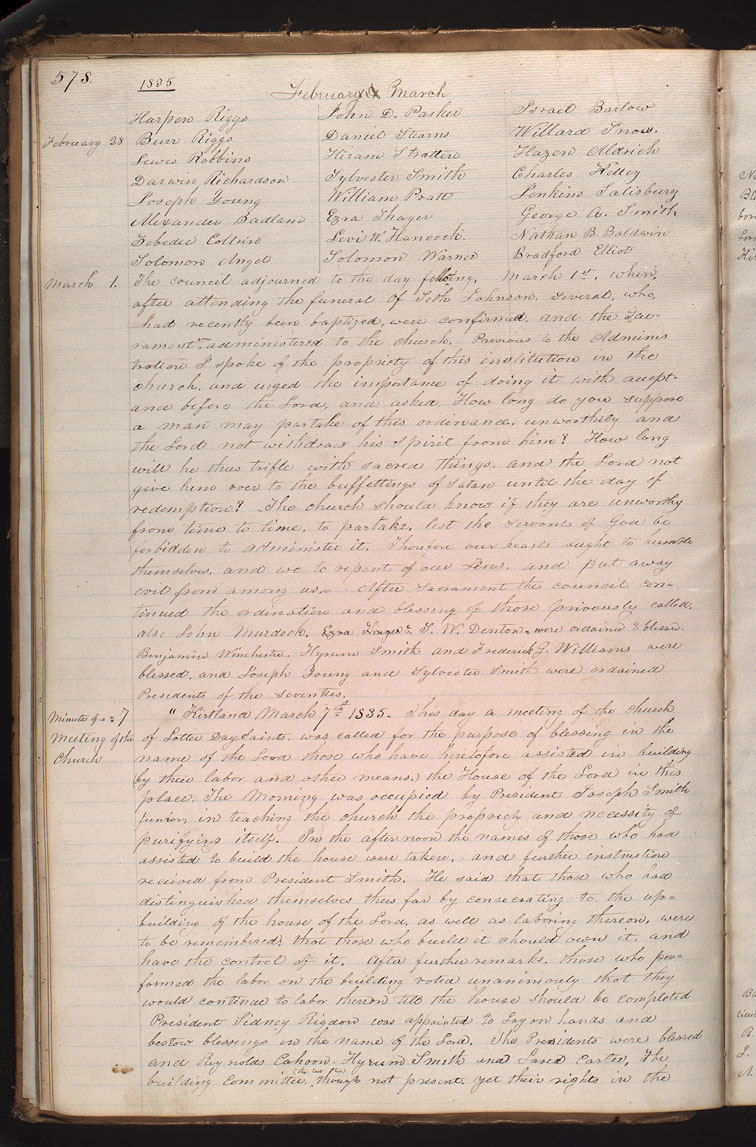 578.
1835
February & March
Harpen Riggs John D. Parker Israel Barlow
February 28 Burr Riggs Daniel Stearns Willard Snow.
Lewis Robbins Hiram Stratten Hazen Aldrich
Darwin Richardson Sylvester Smith Charles Kelley
Joseph Young William Pratt Jenkins Salisbury
Alexander Badlam Ezra Thayer George A. Smith
Zebedee Coltrin Levi W. Hancock. Nathan B. Baldwin
Solomon Angel Solomon Warner Bradford Elliot
March 1. The council adjourned to the day following, March 1st. when,
after attending the funeral of Seth Johnson, several, who,
had recently been baptized, were confirmed, and the Sac-
rament was administered to the church. Previous to the Adminis
tration I spoke of the propriety of this institution in the
church, and urged the importance of doing it with accept-
ance before the Lord, and asked, How long do you suppose
a man may partake of this ordinance, unworthily and
the Lord not withdraw his Spirit from him? How long
will he thus trifle with sacred things, and the Lord not
give him over to the buffettings of Satan until the day of
redemption? The church should know if they are unworthy
from time to time, to partake, lest the servants of God be
forbidden to administer it. Therefore our hearts ought to humble
themselves, and we to repent of our sins, and put away
evil from among us.— After Sacrament the council con-
tinued the ordination and blessing of those previously called,
also John Murdock, Ezra Thayer & S. W. Denton, were ordained & blessed
Benjamin Winchester, Hyrum Smith and Frederick G Williams were
blessed, and Joseph Young and Sylvester Smith were ordained
Presidents of the Seventies.
Minutes of a 7 " Kirtland March 7th 1835. This day a meeting of the church
Meeting of the of Latter Day Saints, was called for the purpose of blessing in the
Church name of the Lord those who have heretofore assisted in building
by their labor and other means, the House of the Lord in this
place. The Morning was occupied by President Joseph Smith
Junior, in teaching the church the propriety and necessity of
purifying itself. In the afternoon the names of those who had
assisted to build the house were taken, and further instruction
received from President Smith. He said that those who had
distinguished themselves thus far by consecrating to the up-
building of the house of the Lord, as well as laboring thereon, were
to be remembered; that those who build it should own it, and
have the control of it. After further remarks, those who per-
formed the labor on the building voted unanimously that they
would continue to labor thereon till the house should be completed
President Sidney Rigdon was appointed to Lay on hands and
bestow blessings in the name of the Lord. The Presidents were blessed
and Reynolds Cahoon, Hyrum Smith and Jared Carter, The
building Committee, though not present, yet their rights in the